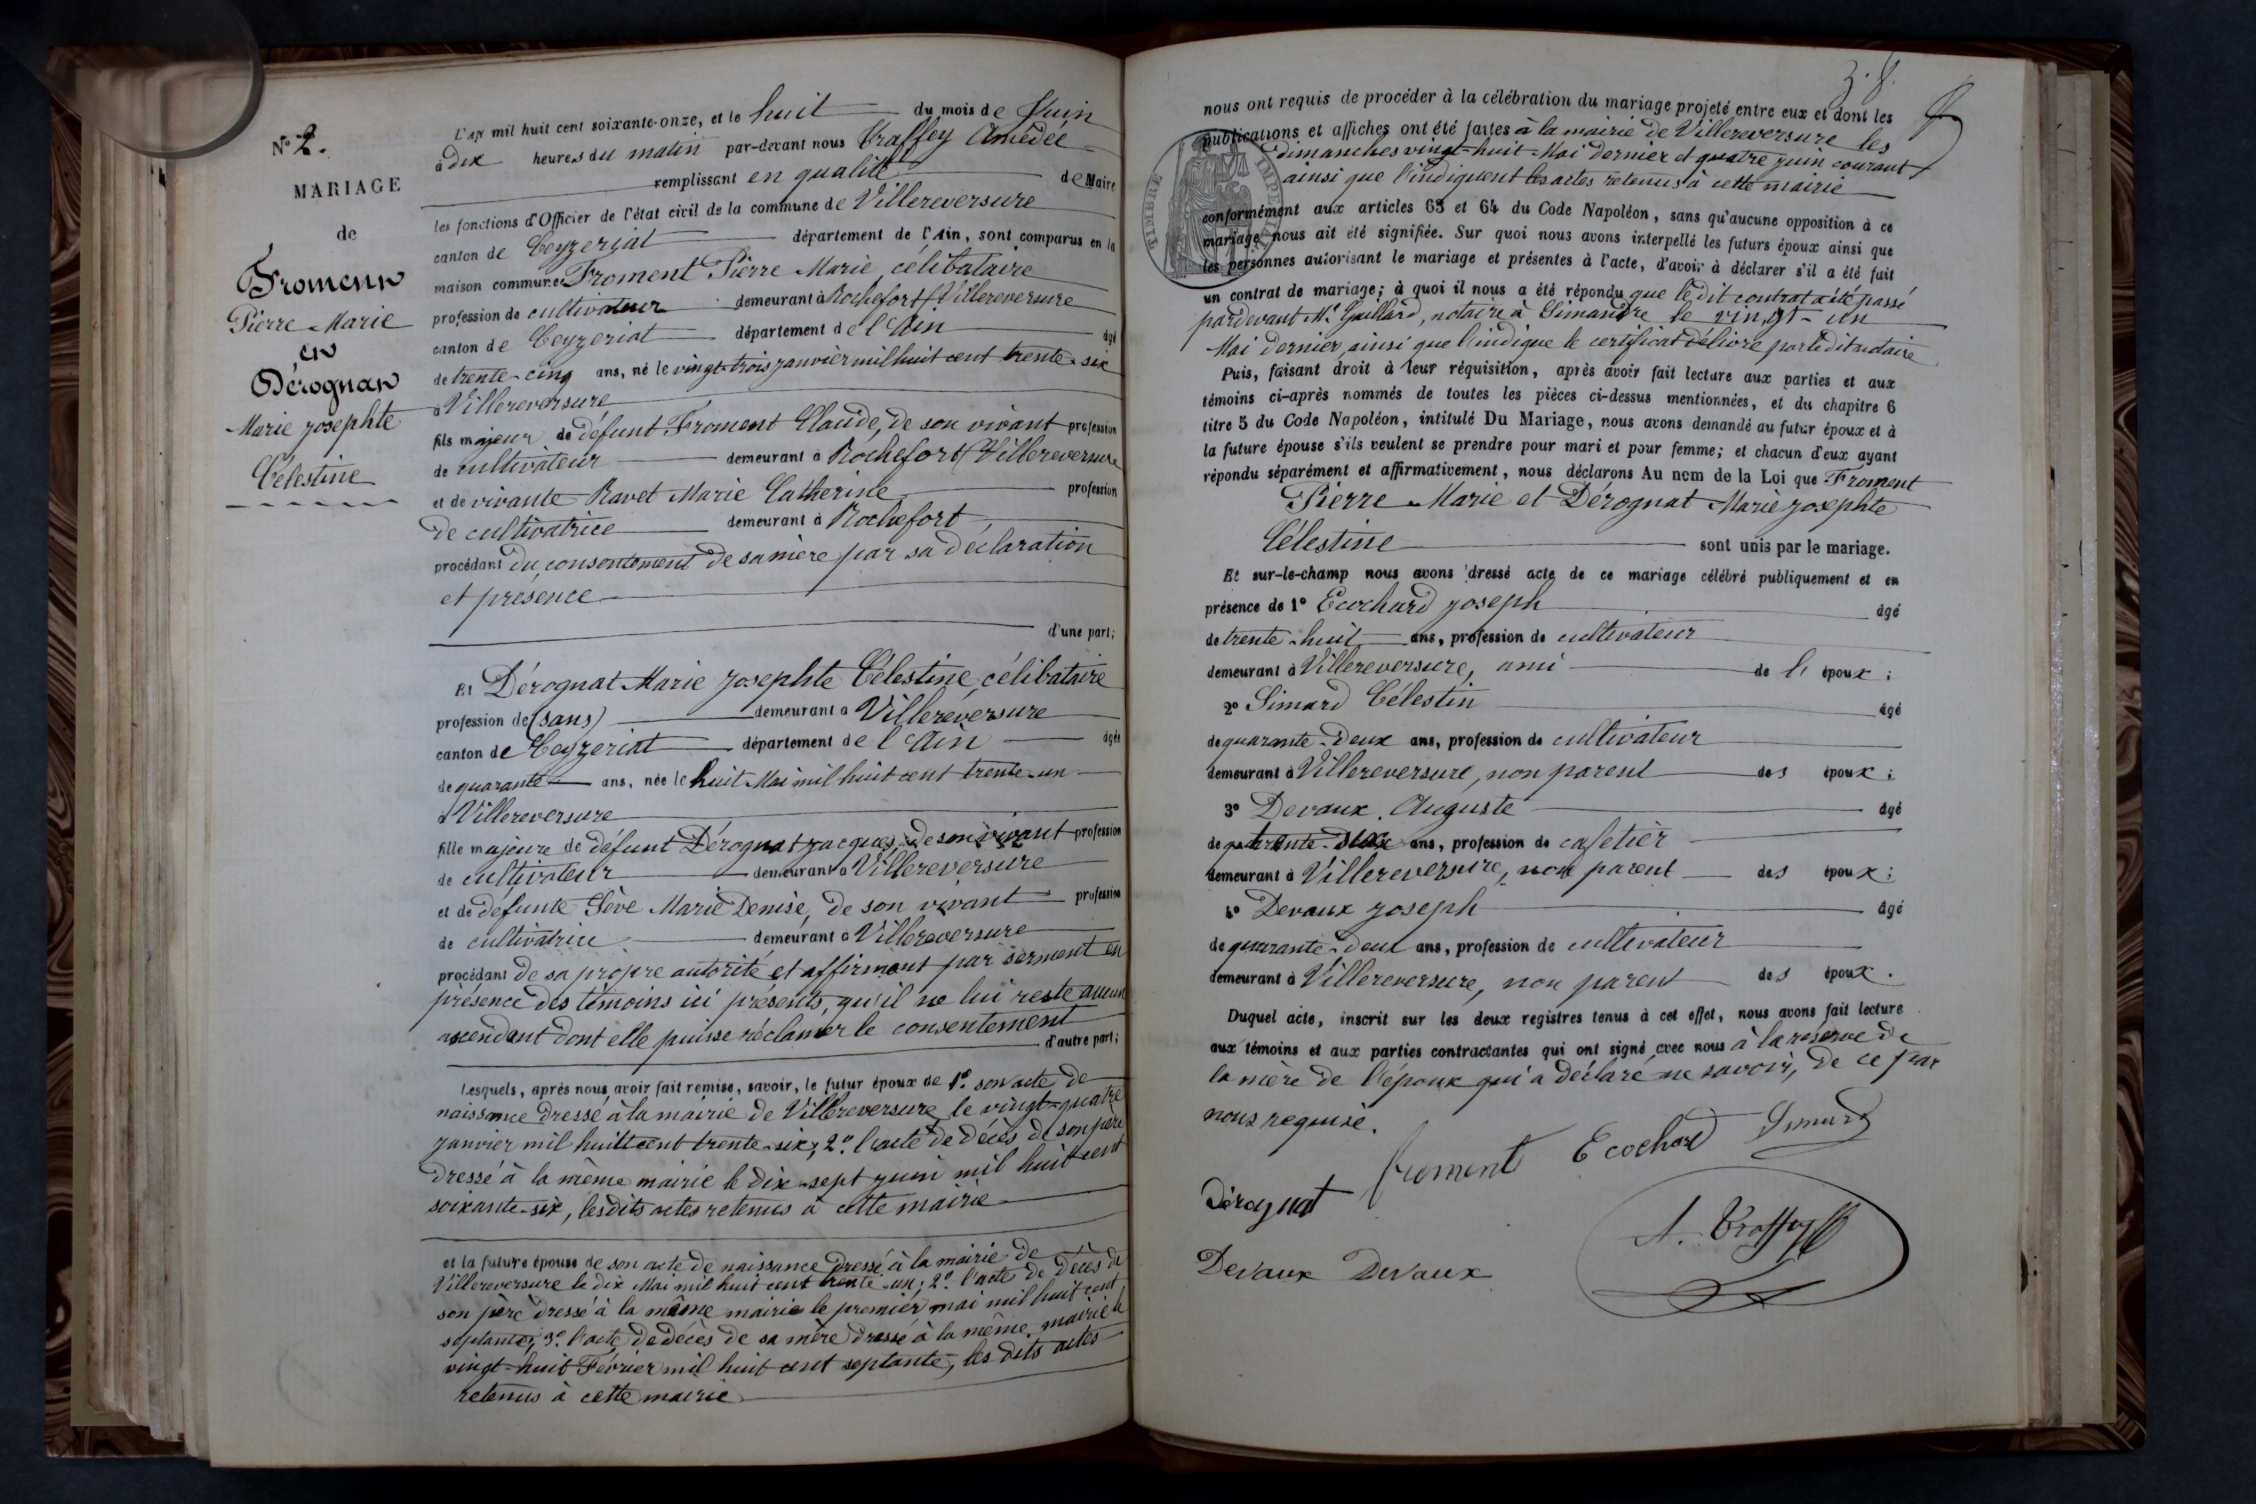 N° 2.
MARIAGE
de
Froment
Pierre Marie
en
Dérognat
Marie Josephte
Célestine
L'an mil huit cent soixante-onze, et le huit du mois de Juin
à dix heures du matin par-devant nous Traffey Amédée
remplissant en qualité de Maire
les fonctions d'Officier de l'état civil de la commune de Villereversure
canton de Ceyzeriat département de l'Ain, sont comparus en la
maison commune Froment Pierre Marie, célibataire
profession de cultivateur demeurant à Rochefort (Villereversure
canton de Ceyzeriat département de l'Ain âgé
de trente-cinq ans, né le vingt-trois janvier mil huit cent trente-six
à Villereversure
fils majeur de défunt Froment Claude, de son vivant profession
de cultivateur demeurant à Rochefort (Villereversure
et de vivante Ravet Marie Catherine profession
de cultivatrice demeurant à Rochefort
procédant du consentement de sa mère par sa déclaration
et présence
d'une part;
Et Dérognat Marie Josephte Célestine, célibataire
profession de (sans) demeurant à Villereversure
canton de Ceyzeriat département de l'Ain âgée
de quarante ans, née le huit Mai mil huit cent trente-un
à Villereversure
fille majeure de défunt Dérognat Jacques, de son vivant profession
de cultivateur demeurant à Villereversure
et de défunte Sève Marie Denise, de son vivant profession
de cultivatrice demeurant à Villereversure
procédant de sa propre autorité et affirmant par serment en
présence des témoins ici présents, qu'il ne lui reste aucun
ascendant dont elle puisse réclamer le consentement
d'autre part;
Lesquels, après nous avoir fait remise, savoir, le futur époux de 1° son acte de
naissance dressé à la mairie de Villereversure le vingt-quatre
janvier mil huit cent trente-six; 2° l'acte de décès de son père
dressé à la même mairie le dix-sept juin mil huit cent
soixante-six, lesdits actes retenus à cette mairie
et la future épouse de son acte de naissance dressé à la mairie de
Villereversure le dix Mai mil huit cent trente-un; 2° l'acte de décès de
son père dressé à la même mairie le premier mai mil huit cent
septante; 3° l'acte de décès de sa mère dressé à la même mairie le
vingt-huit Février mil huit cent septante, les dits actes
retenus à cette mairie
nous ont requis de procéder à la célébration du mariage projeté entre eux et dont les
publications et affiches ont été faites à la mairie de Villereversure les
dimanches vingt-huit Mai dernier et quatre juin courant
ainsi que l'indiquent les actes retenus à cette mairie
TIMBRE IMPERIAL
conformément aux articles 63 et 64 du Code Napoléon, sans qu'aucune opposition à ce
mariage nous ait été signifiée. Sur quoi nous avons interpellé les futurs époux ainsi que
les personnes autorisant le mariage et présentes à l'acte, d'avoir à déclarer s'il a été fait
un contrat de mariage; à quoi il nous a été répondu que le dit contrat a été passé
pardevant Me Gaillard, notaire à Simandre le vingt-un
Mai dernier, ainsi que l'indique le certificat délivré par le dit notaire
Puis, faisant droit à leur réquisition, après avoir fait lecture aux parties et aux
témoins ci-après nommés de toutes les pièces ci-dessus mentionnées, et du chapitre 6
titre 5 du Code Napoléon, intitulé Du Mariage, nous avons demandé au futur époux et à
la future épouse s'ils veulent se prendre pour mari et pour femme; et chacun d'eux ayant
répondu séparément et affirmativement, nous déclarons Au nom de la Loi que Froment
Pierre Marie et Dérognat Marie Josephte
Célestine sont unis par le mariage.
Et sur-le-champ nous avons dressé acte de ce mariage célébré publiquement et en
présence de 1° Ecochard Joseph âgé
de trente-huit ans, profession de cultivateur
demeurant à Villereversure, ami de l' époux;
2° Simard Célestin âgé
de quarante-deux ans, profession de cultivateur
demeurant à Villereversure, non parent des époux;
3° Devaux Auguste âgé
de ans, profession de cafetier
demeurant à Villereversure, non parent des époux;
4° Devaux Joseph âgé
de quarante-deux ans, profession de cultivateur
demeurant à Villereversure, non parent des époux.
Duquel acte, inscrit sur les deux registres tenus à cet effet, nous avons fait lecture
aux témoins et aux parties contractantes qui ont signé avec nous à la réserve de
la mère de l'époux qui a déclaré ne savoir, de ce par
nous requise.
froment Ecochard Simard
Dérognat
A. Traffey
Devaux Devaux